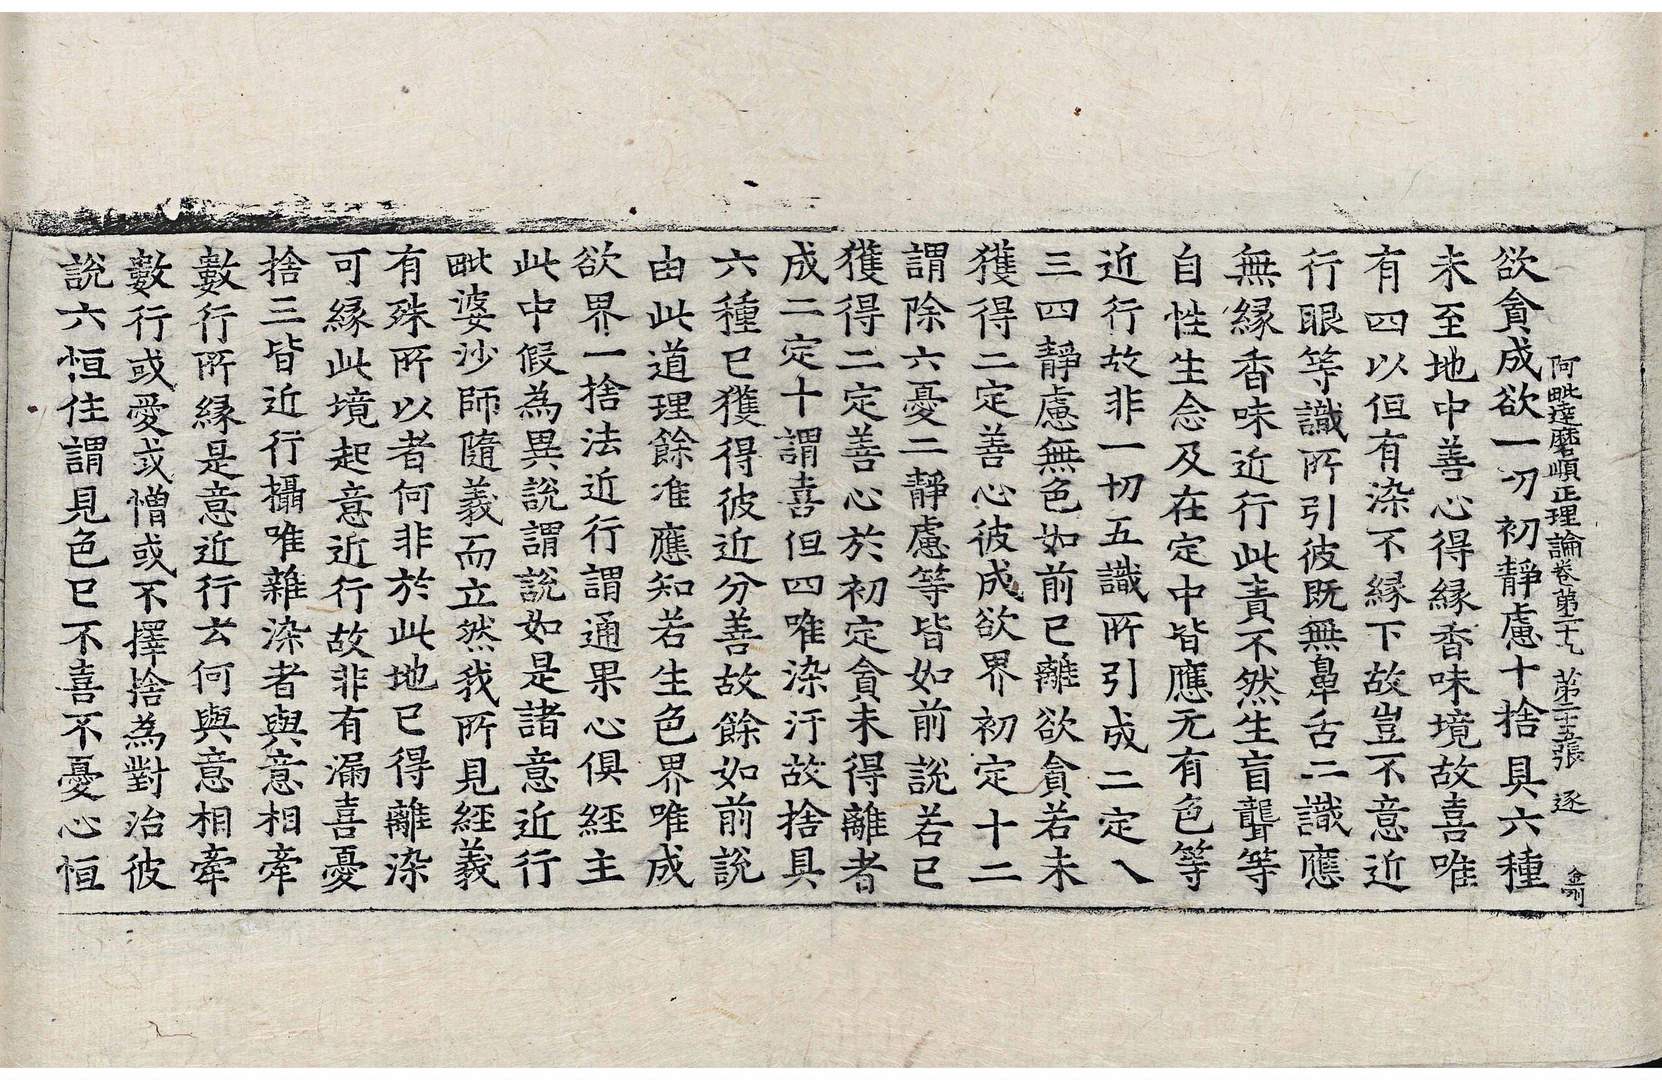 阿毗達磨順正理論卷第二十九 第二十五張 逐
欲貪成欲一切初靜慮十捨具六種
未至地中善心得緣香味境故喜唯
有四以但有染不緣下故豈不意近
行眼等識所引彼既無鼻舌二識應
無緣香味近行此責不然生盲聾等
自性生念及在定中皆應无有色等
近行故非一切五識所引成二定八
三四靜慮無色如前已離欲貪若未
獲得二定善心彼成欲界初定十二
謂除六憂二靜慮等皆如前說若已
獲得二定善心於初定貪未得離者
成二定十謂喜但四唯染汙故捨具
六種已獲得彼近分善故餘如前說
由此道理餘准應知若生色界唯成
欲界一捨法近行謂通果心俱經主
此中假為異說謂說如是諸意近行
毗婆沙師隨義而立然我所見經義
有殊所以者何非於此地已得離染
可緣此境起意近行故非有漏喜憂
捨三皆近行攝唯雜染者與意相牽
數行所緣是意近行云何與意相牽
數行或愛或憎或不擇捨為對治彼
說六恒住謂見色已不喜不憂心恒